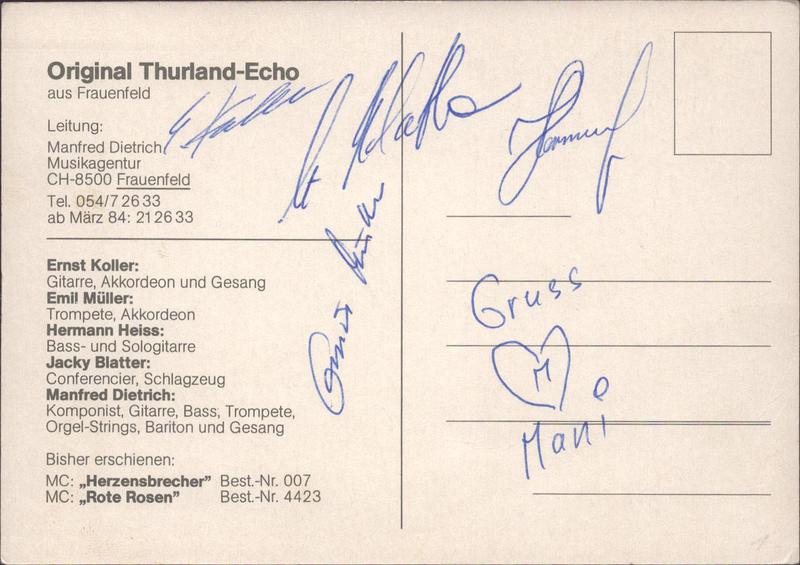 Original Thurland-Echo
aus Frauenfeld
Leitung:
Manfred Dietrich
Musikagentur
CH-8500 Frauenfeld
Tel. 054/7 26 33
ab März 84: 21 26 33
E. Koller
Ernst Koller:
Gitarre, Akkordeon und Gesang
Emil Müller:
Trompete, Akkordeon
Hermann Heiss:
Bass- und Sologitarre
Jacky Blatter:
Conferencier, Schlagzeug
Manfred Dietrich:
Komponist, Gitarre, Bass, Trompete,
Orgel-Strings, Bariton und Gesang
Bisher erschienen:
MC: „Herzensbrecher” Best.-Nr. 007
MC: „Rote Rosen” Best.-Nr. 4423
Gruss
M
Mani